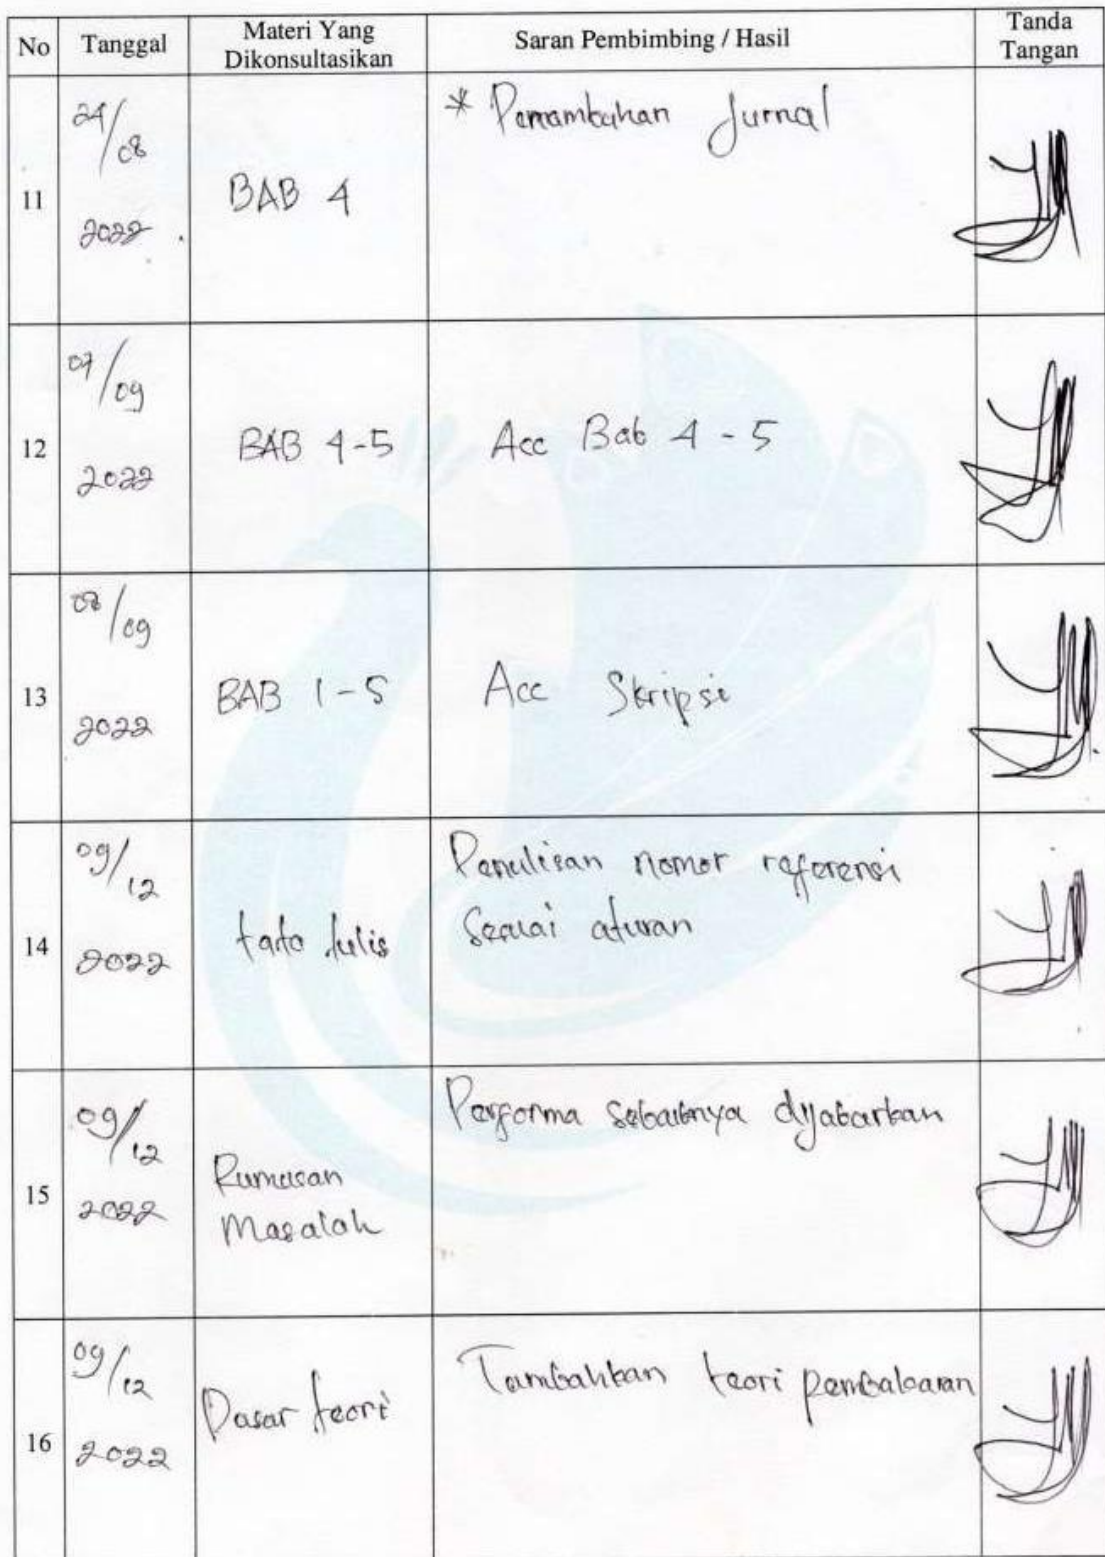 No Tanggal Materi Yang Dikonsultasikan Saran Pembimbing / Hasil Tanda Tangan
11 24/08 2022 BAB 4 * Penambahan Jurnal
12 07/09 2022 BAB 4-5 Acc Bab 4 - 5
13 08/09 2022 BAB 1-5 Acc Skripsi
14 09/12 2022 tata tulis Penulisan nomor referensi
sesuai aturan
15 09/12 2022 Rumusan Masalah Performa sebaiknya dijabarkan
16 09/12 2022 Dasar teori Tambahkan teori pembakaran